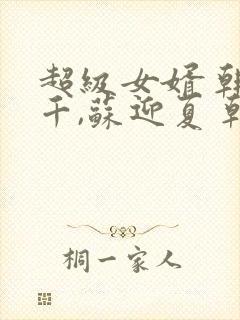 超級女婿
千,蘇迎夏
桐一家人